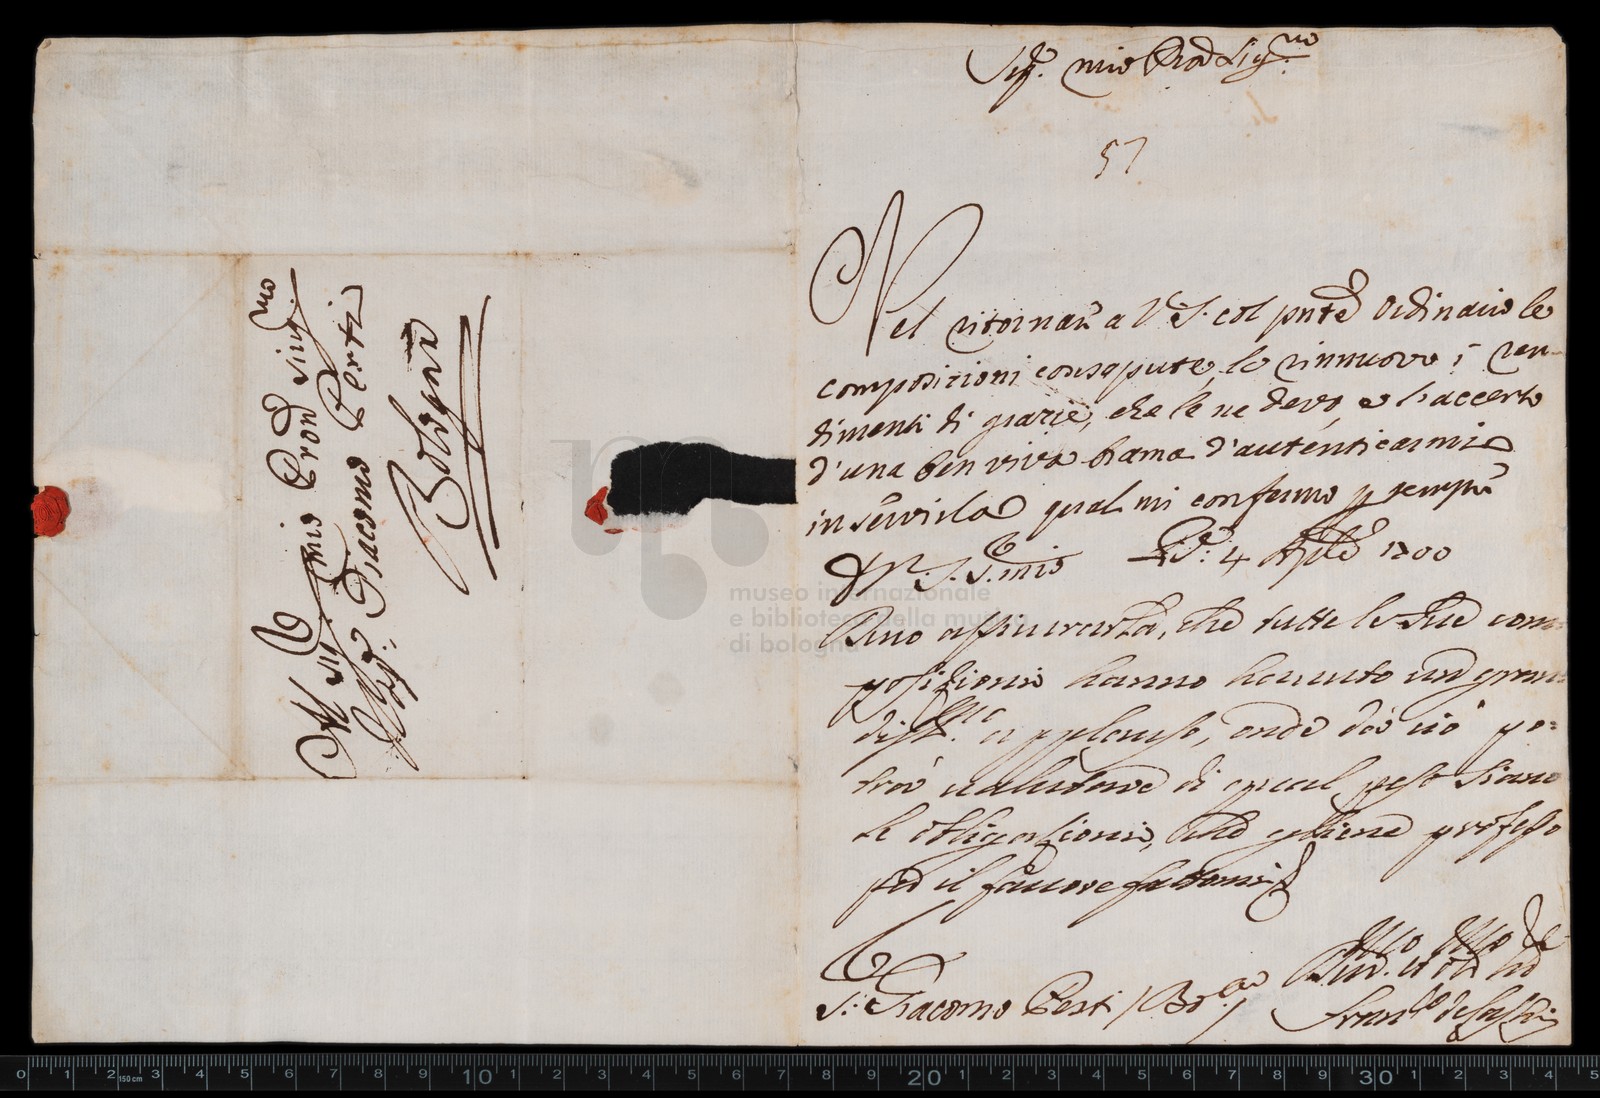 Sig.r mio Pron Sing.mo
57
Nel ritornar a V.S. col pnte Ordinario le
composizioni consapute, le rinnuovo i ren-
dimenti di grazie, che le ne devo, e l'accerto
d'una ben viva brama d'autenticarmi
in servirla qual mi confermo p sempre
D V.S. S. mio 4 Aple 1700
Devo assicurarla, che tutte le Sue com=
posizioni hanno havuto un gran=
diss.mo applauso, onde da ciò po=
trà valutare di qual peso siano
le obligazioni, che gliene professo
per il favore fattomi
S.r Giacomo Perti / Bo.a /
Al Sig.r mio Pron Sing.mo
Il Sig.r Giacomo Perti
Bologna
museo internazionale
e biblioteca della musica
di bologna
0 1 2 150 cm 3 4 5 6 7 8 9 10 1 2 3 4 5 6 7 8 9 20 1 2 3 4 5 6 7 8 9 30 1 2 3 4 5